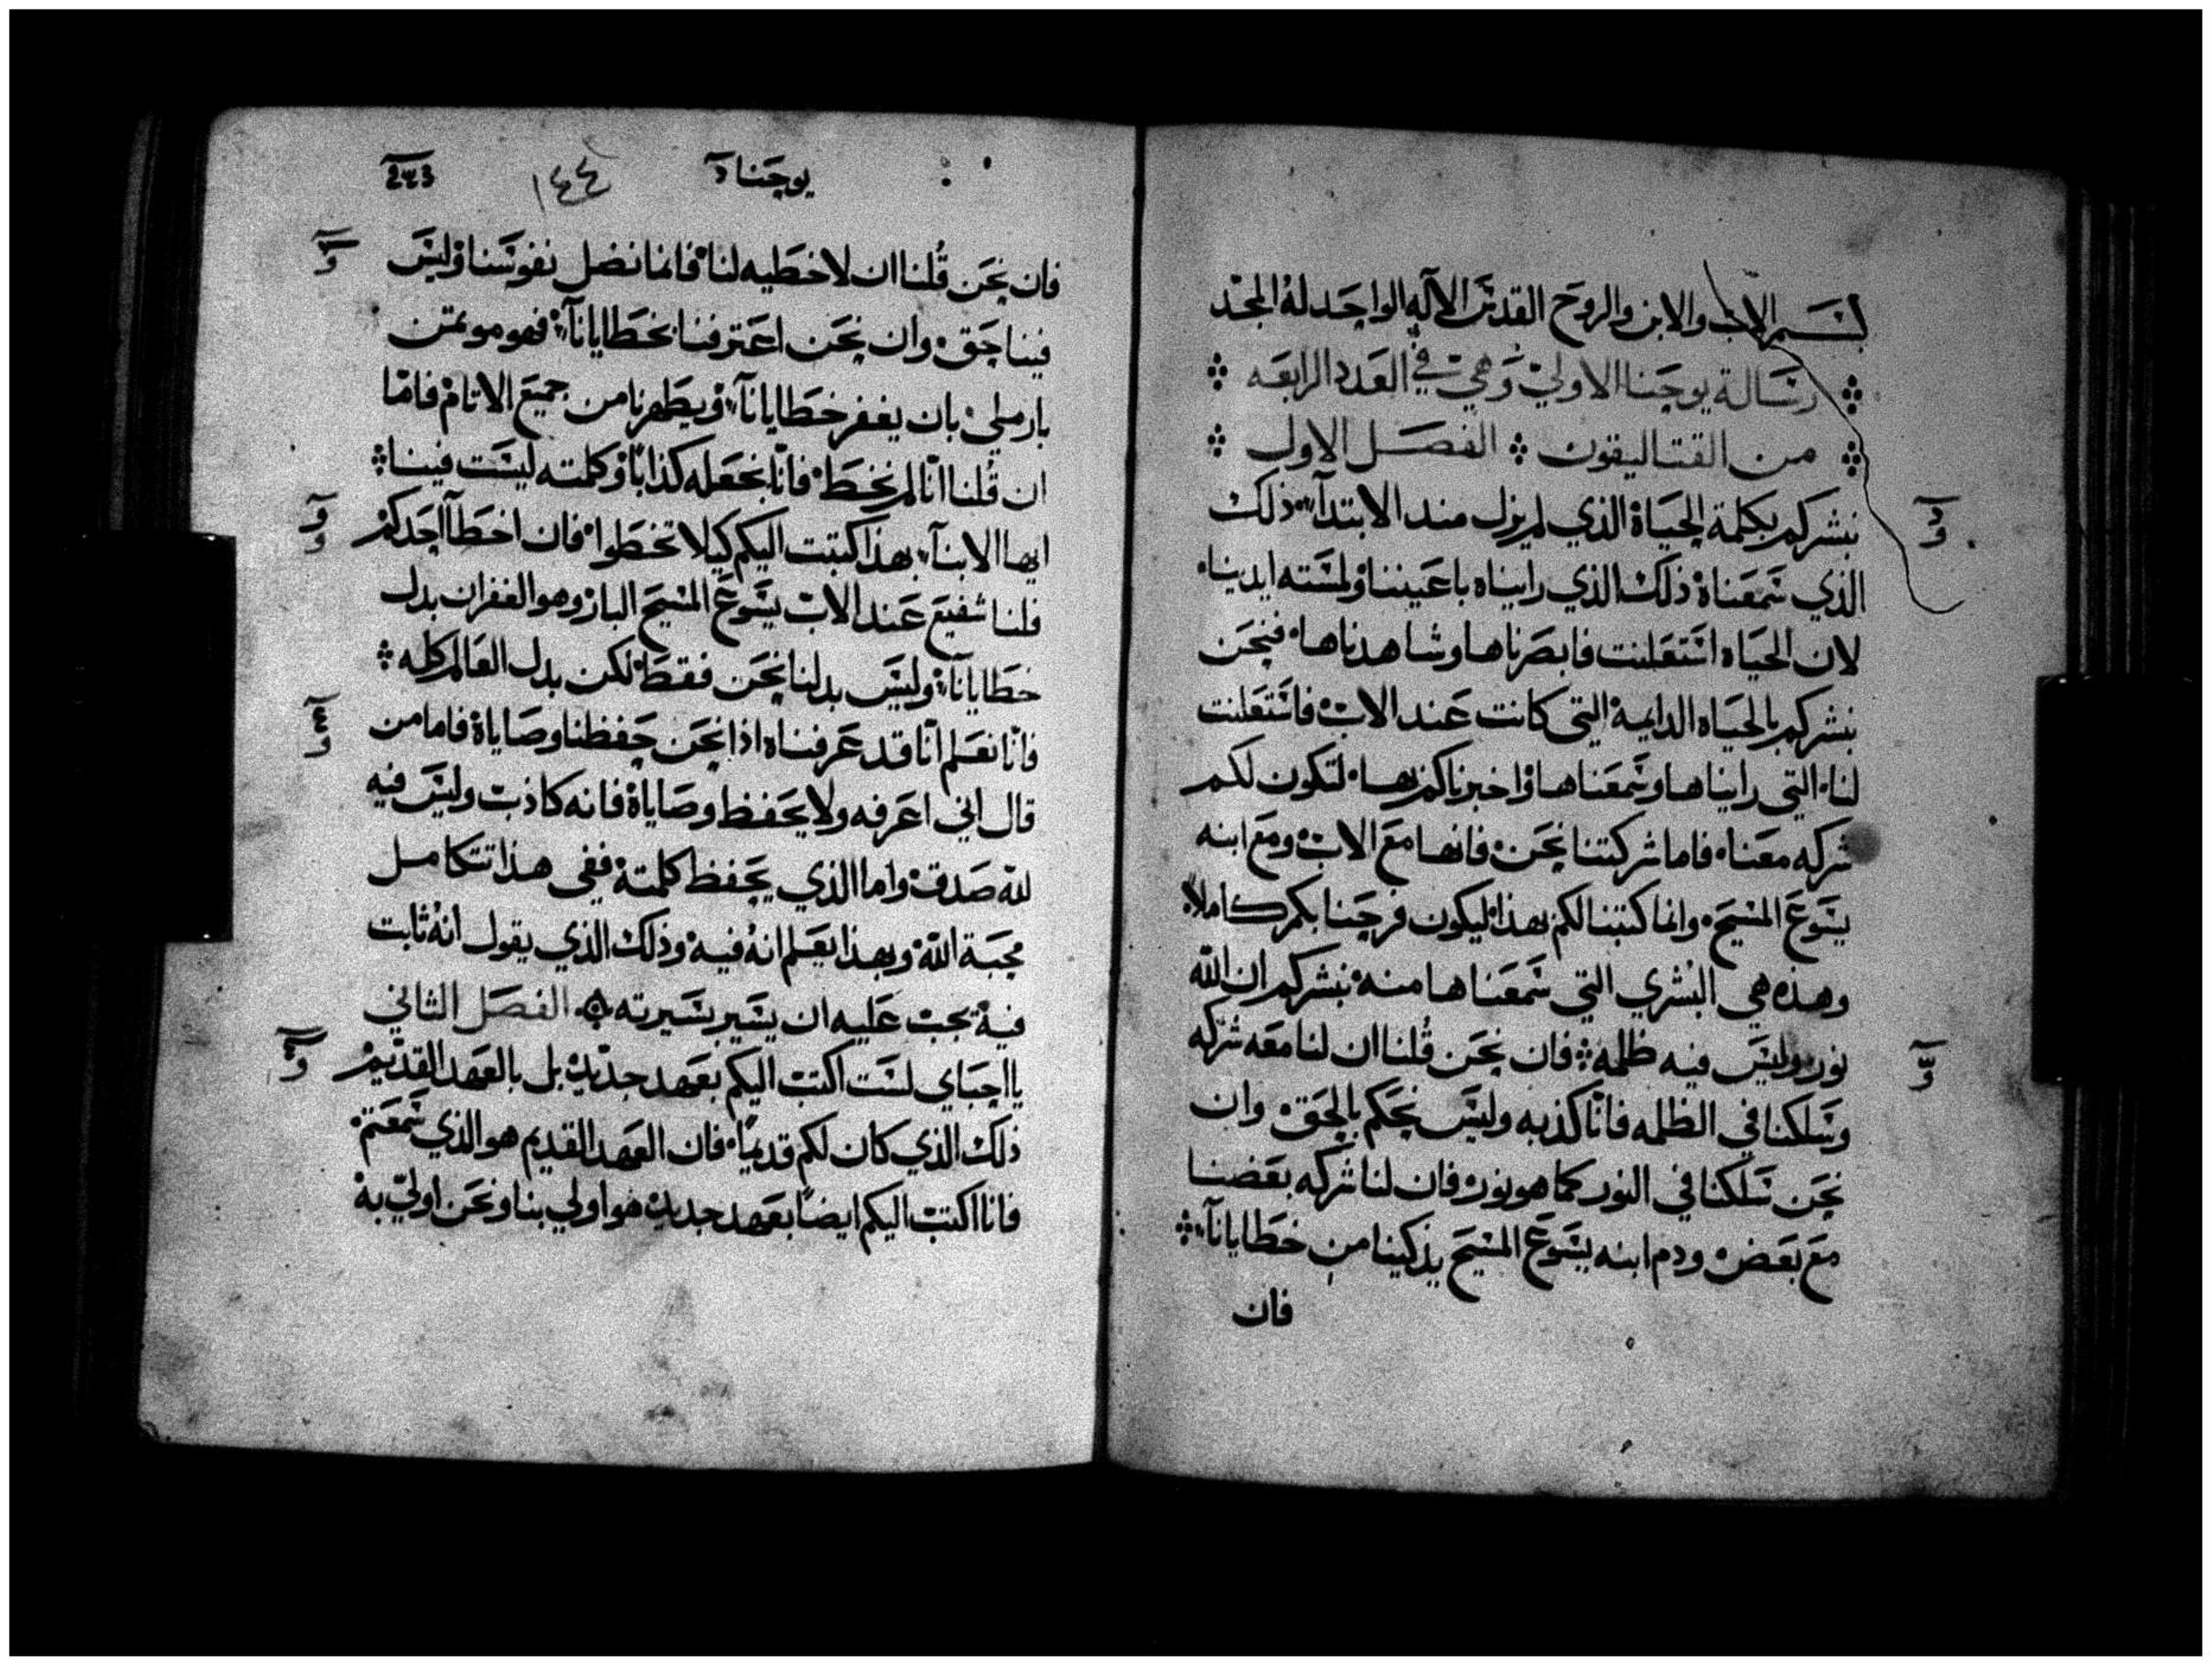 بسم الاب والابن والروح القدس الاله الواحد له المجد
رسالة يوحنا الاولي وهي في العدد الرابعه
من القتاليقون الفصل الاول
نبشركم بكلمة الحياة الذي لم يزل مند الابتدآ ذلك
الذي سمعناه ذلك الذي رايناه باعيننا ولمسته ايدينا
لان الحياه استعلنت فابصرناها وشاهدناها فنحن
نبشركم بالحياه الدايمة التي كانت عند الاب فاستعلنت
لنا التي رايناها وسمعناها واخبرناكم بها لتكون لكم
شركه معنا فاما شركتنا نحن فانها مع الاب ومع ابنه
يسوع المسيح وانما كتبنا لكم بهذا ليكون فرحنا بكم كاملاً
وهذه هي البشري التي سمعناها منه نبشركم ان الله
نور وليس فيه ظلمه فان نحن قُلنا ان لنا معه شركه
وسلكنا في الظلمه فانّا كذبه وليس نحكم بالحق وان
نحن سلكنا في النور كما هو نور فان لنا شركه بعضنا
مع بعض ودم ابنه يسوع المسيح يذكينا من خطايانآ
فان
يوحنا آ ١٤٤
فان نحن قُلنا ان لا خطيه لنا فانما نضل نفوسنا وليس
فينا حق وان نحن اعترفنا بخطايانآ فهو موتمن
بار ملي بان يغفر خطايانآ ويطهرنا من جميع الاتام فامّا
ان قُلنا انّا لم نخط فانّا نجعله كذابًا وكلمته ليست فينا
ايها الابنآ بهذا كتبت اليكم كيلا تخطوا فان اخطآ احدكم
فلنا شفيع عند الاب يسوع المسيح البار وهو الغفران بدل
خطايانآ وليس بدلنا نحن فقط لكن بدل العالم كله
فانّا نعلم انّا قد عرفناه اذا نحن حفظنا وصاياه فاما من
قال اني اعرفه ولا يحفظ وصاياه فانه كاذب وليس فيه
لله صدق واما الذي يحفظ كلمته ففي هذا تتكامل
محبة الله وبهذا يعلم انهُ فيه وذلك الذي يقول انهُ ثابت
فيه يجب عليه ان يسير بسيرته الفصل الثاني
يا احباي لست اكتب اليكم بعهد جديد بل بالعهد القديم
ذلك الذي كان لكم قديمًا فان العهد القديم هو الذي سمعتم
فانا اكتب اليكم ايضًا بعهد جديد هو اولي بنا ونحن اولي به